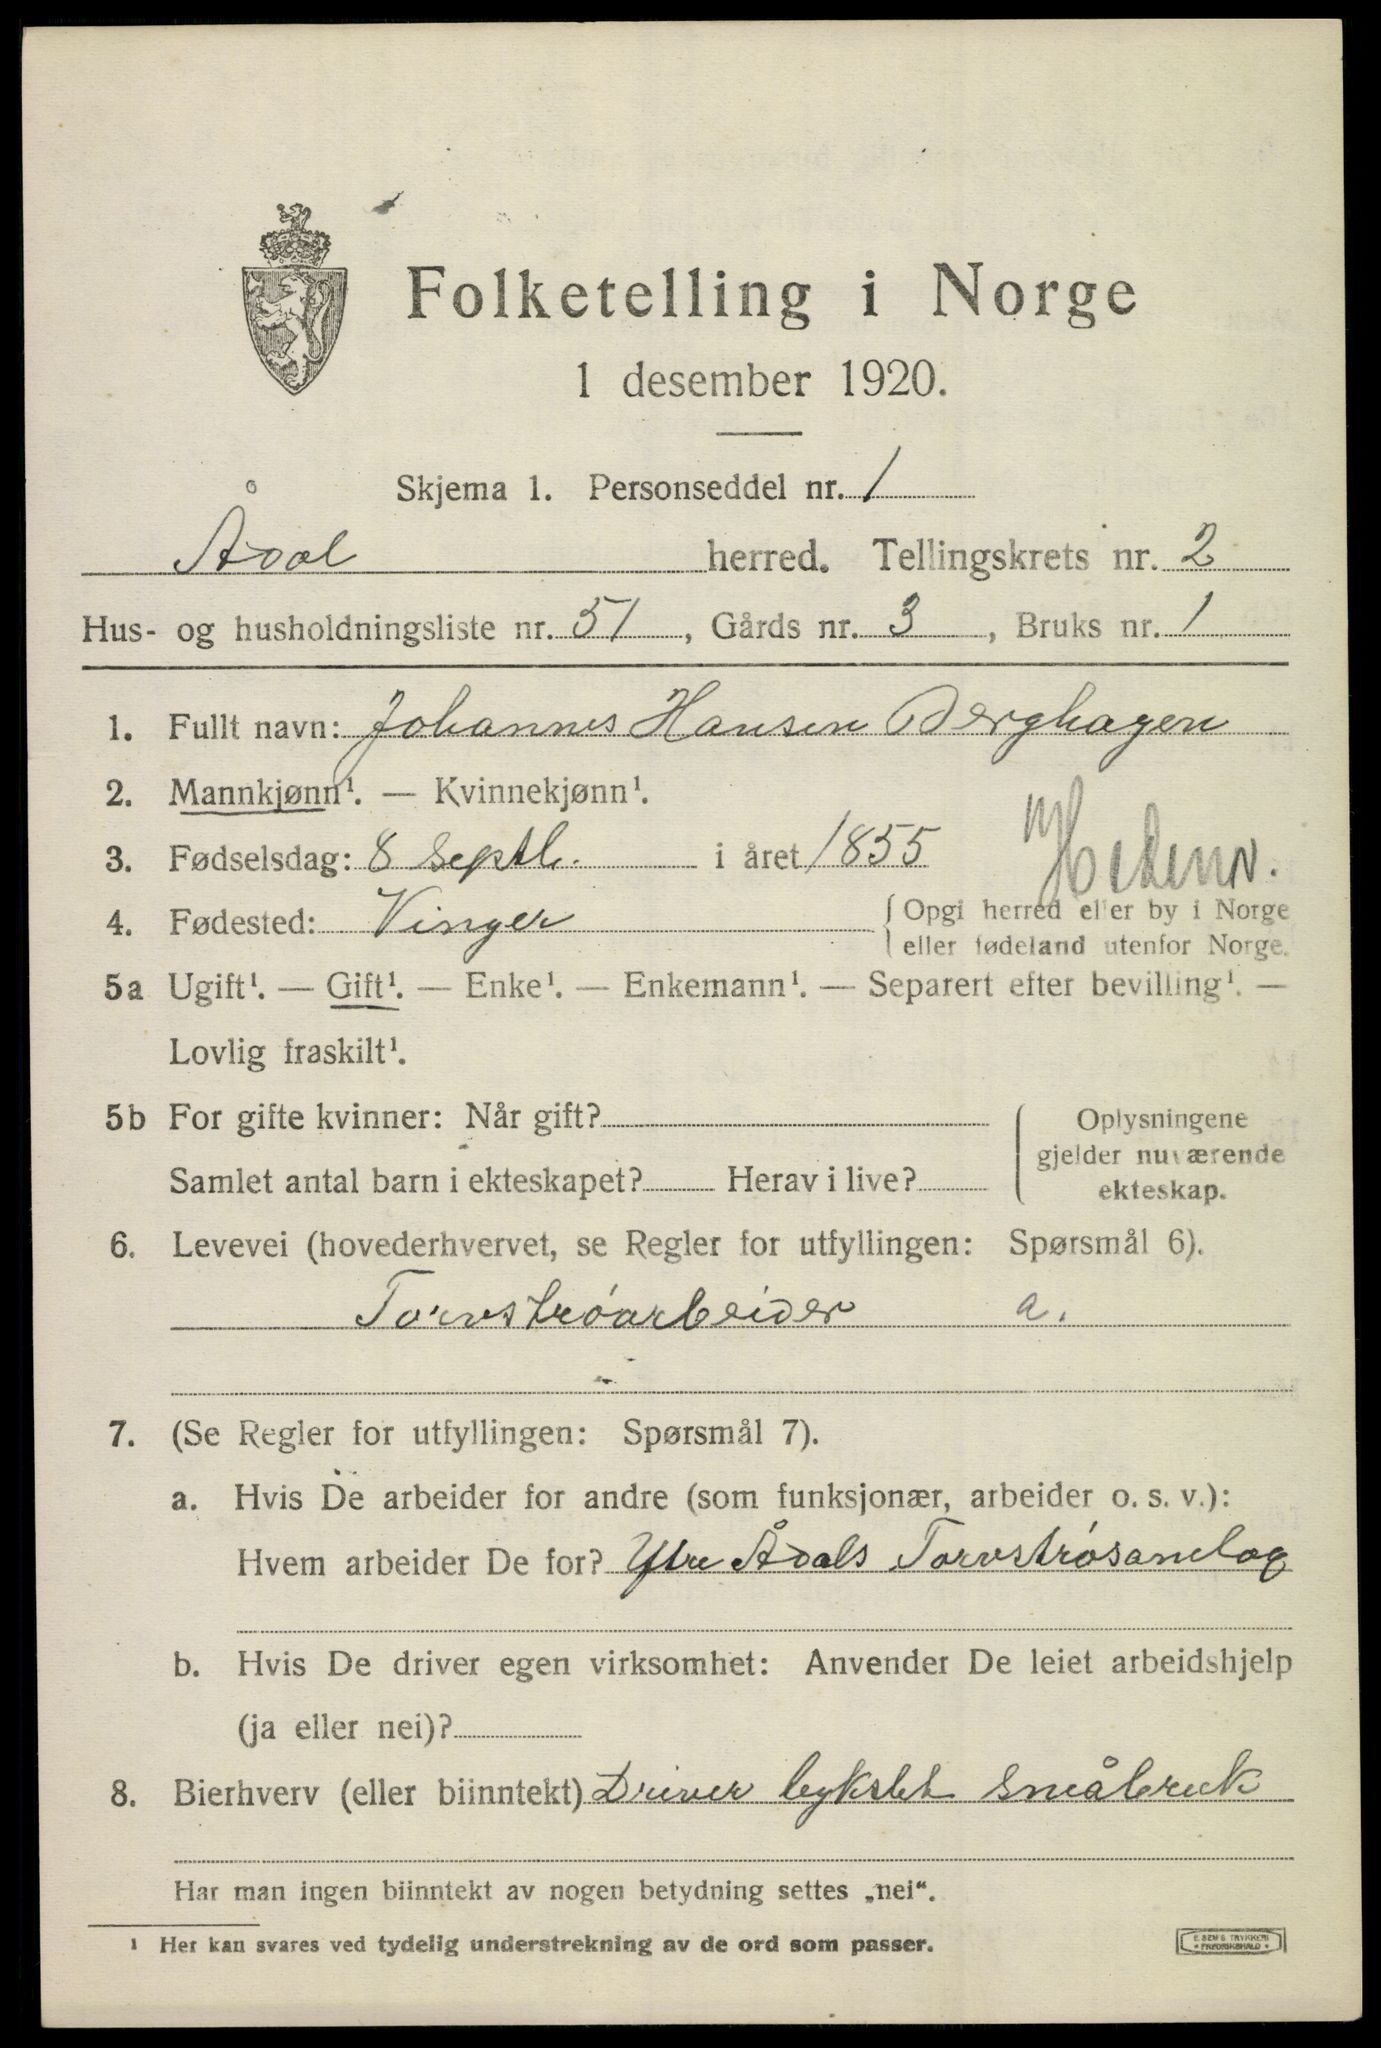 Folketelling i Norge
1 desember 1920.
Skjema 1. Personseddel nr. 1
Ådal herred. Tellingskrets nr. 2
Hus- og husholdningsliste nr. 51, Gårds nr. 3, Bruks nr. 1
1. Fullt navn: Johannes Hansen Berghagen
2. Mannkjønn¹. — Kvinnekjønn¹.
3. Fødselsdag: 8 Septb. i året 1855
4. Fødested: Vinger { Opgi herred eller by i Norge
eller fødeland utenfor Norge.
5a Ugift¹. — Gift¹. — Enke¹. — Enkemann¹. — Separert efter bevilling¹. —
Lovlig fraskilt¹.
5b For gifte kvinner: Når gift?
Samlet antal barn i ekteskapet? Herav i live?
Oplysningene
gjelder nuværende
ekteskap.
6. Levevei (hovederhvervet, se Regler for utfyllingen: Spørsmål 6).
Torvströarbeider a.
7. (Se Regler for utfyllingen: Spørsmål 7).
a. Hvis De arbeider for andre (som funksjonær, arbeider o. s. v.):
Hvem arbeider De for? Ytre Ådals Torvstrøsamlag
b. Hvis De driver egen virksomhet: Anvender De leiet arbeidshjelp
(ja eller nei)?
8. Bierhverv (eller biinntekt) Driver bykslet småbruk
Har man ingen biinntekt av nogen betydning settes „nei“.
¹ Her kan svares ved tydelig understrekning av de ord som passer.
E. SEM'S TRYKKERI
FREDRIKSHALD